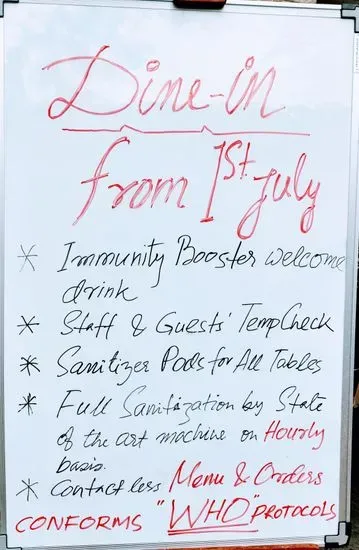 Dine-in
from 1st July
* Immunity Booster welcome
drink
* Staff & Guests' Temp Check
* Sanitizer Pods for All Tables
* Full Sanitization by State
of the art machine on Hourly
basis.
* Contactless Menu & Orders
CONFORMS "WHO" PROTOCOLS